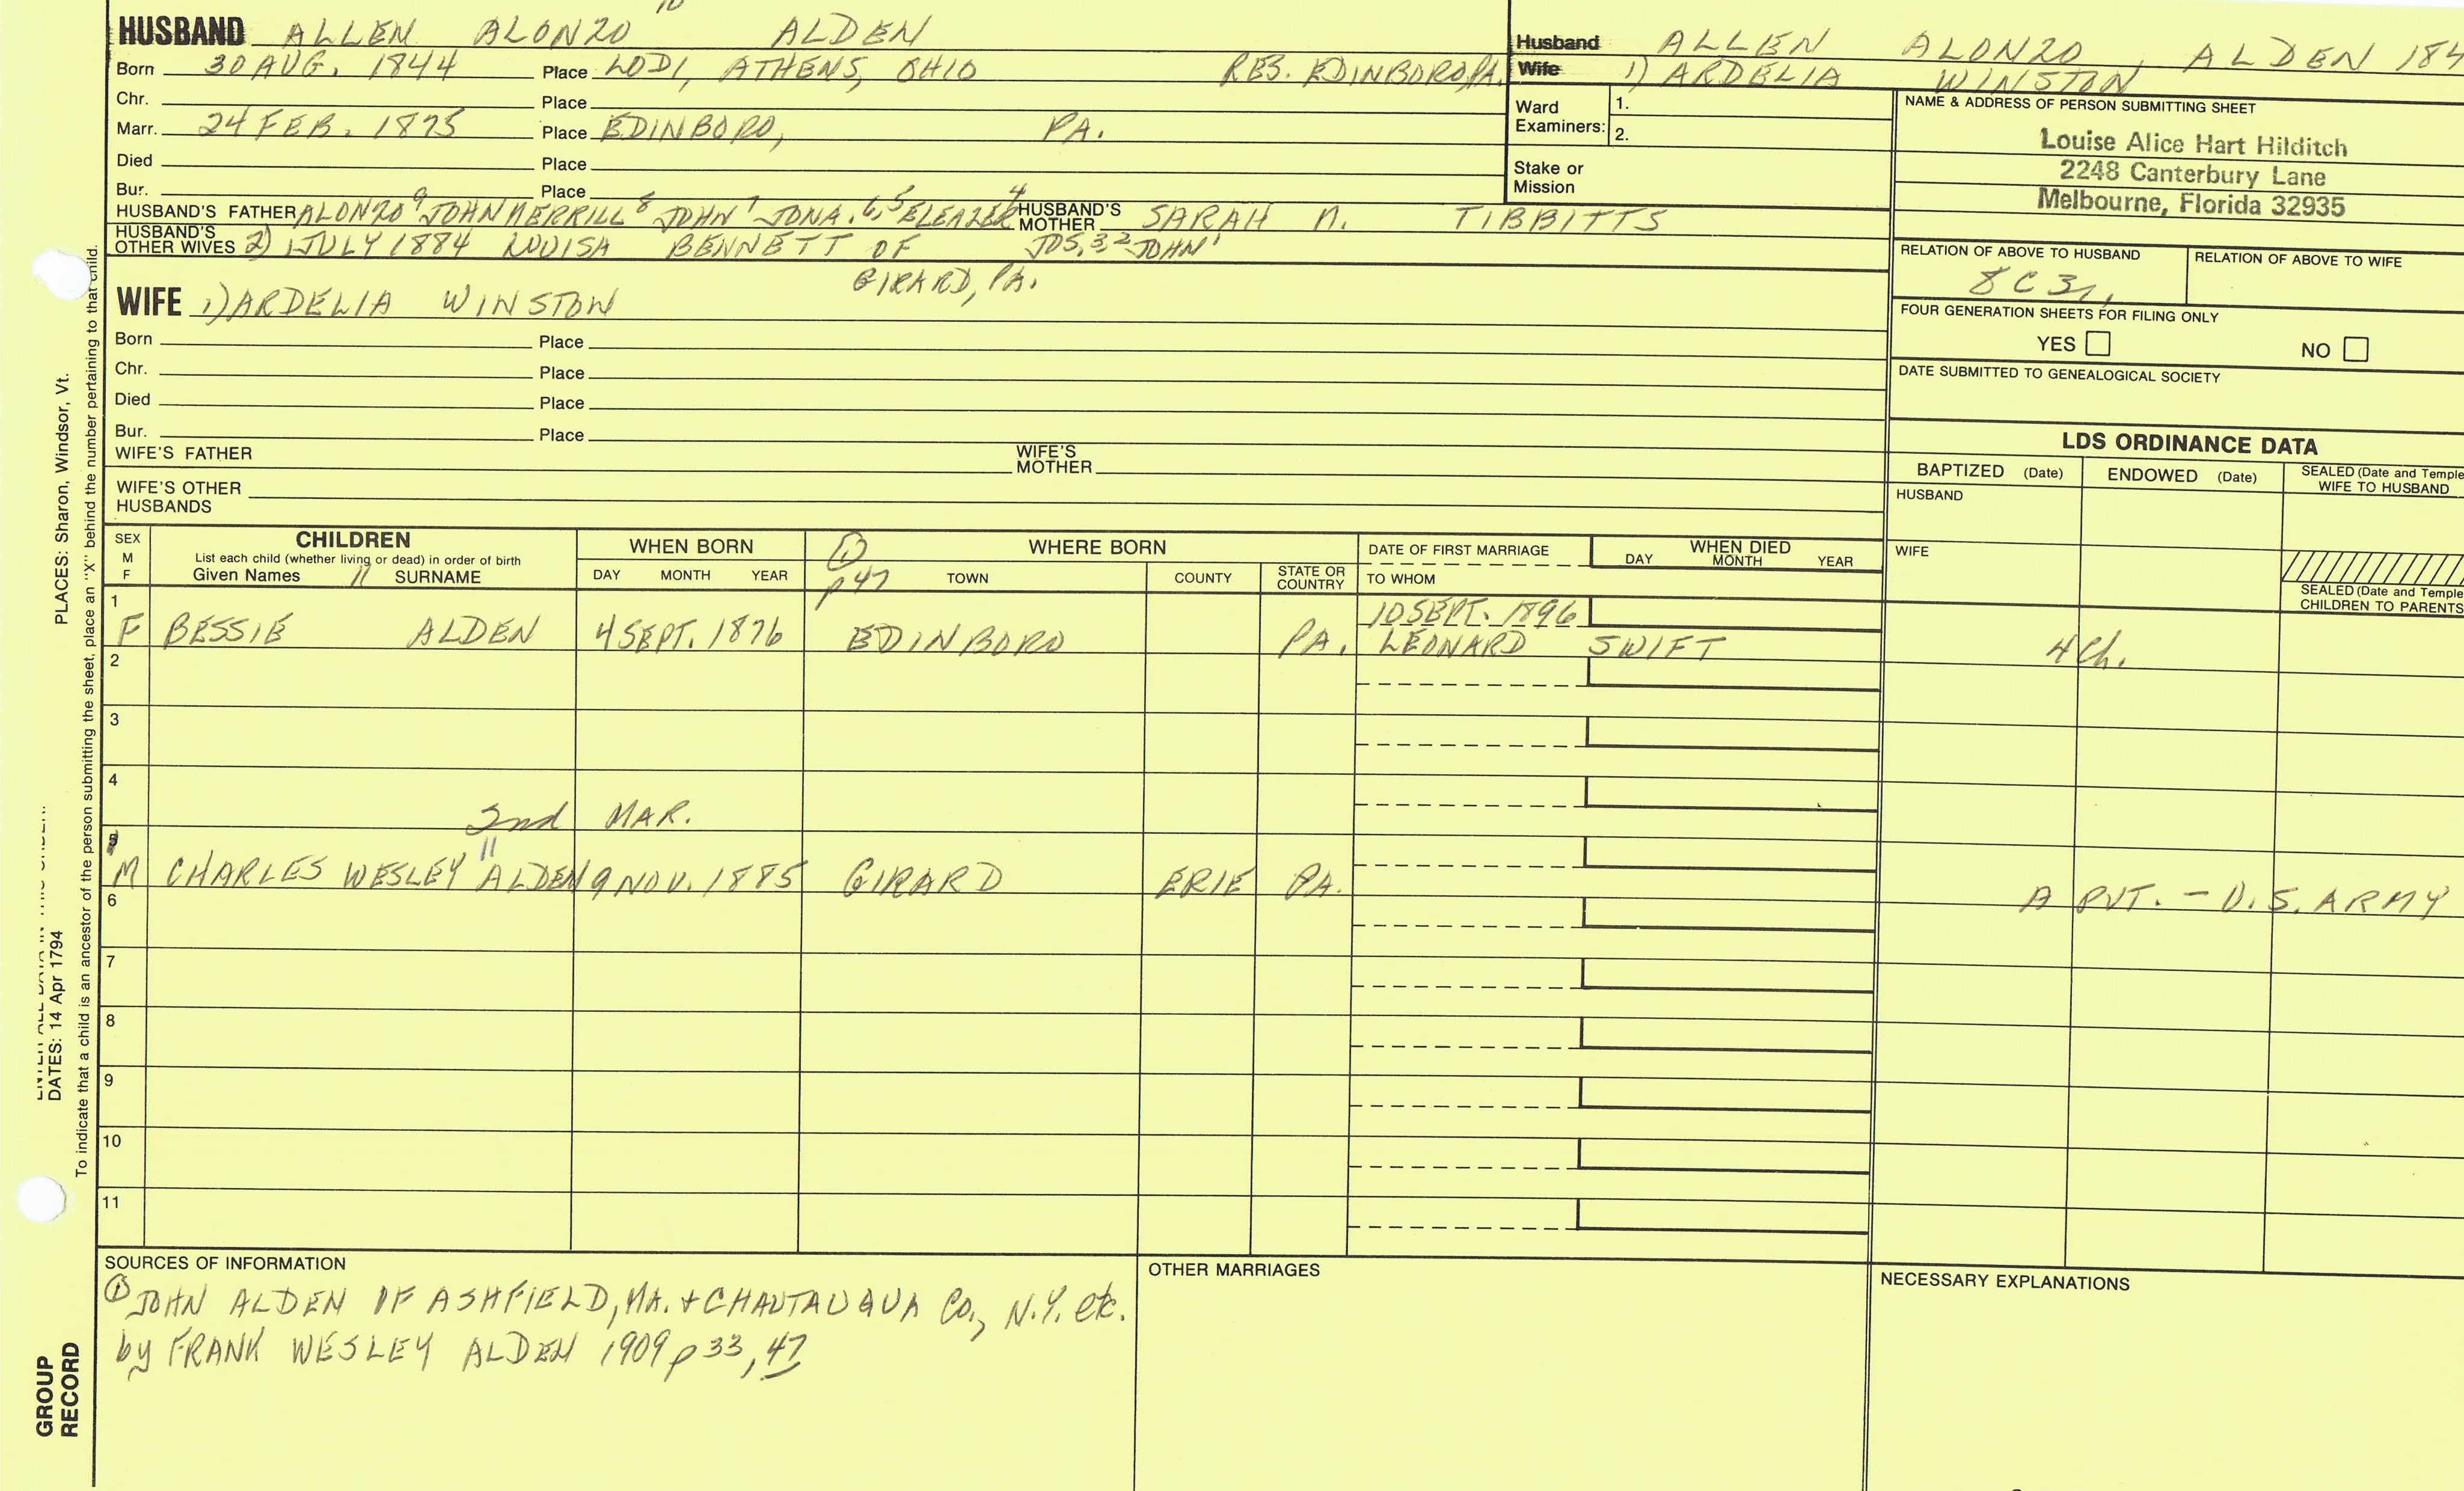 10
HUSBAND ALLEN ALONZO ALDEN
Born 30 AUG. 1844 Place LODI, ATHENS, OHIO RES. EDINBORO, PA.
Chr. Place
Marr. 24 FEB. 1875 Place EDINBORO, PA.
Died Place
Bur. Place
HUSBAND'S FATHER ALONZO 9 JOHN MERRILL 8 JOHN 7 JONA. 6,5 ELEAZER 4 HUSBAND'S MOTHER SARAH N. TIBBITTS
HUSBAND'S OTHER WIVES 2) 1 JULY 1884 LOUISA BENNETT OF JOS. 3,2 JOHN 1
GIRARD, PA.
WIFE 1) ARDELIA WINSTON
Born Place
Chr. Place
Died Place
Bur. Place
WIFE'S FATHER WIFE'S MOTHER
WIFE'S OTHER HUSBANDS
Husband ALLEN ALONZO, ALDEN 184
Wife 1) ARDELIA WINSTON
Ward Examiners: 1.
2.
Stake or Mission
NAME & ADDRESS OF PERSON SUBMITTING SHEET
Louise Alice Hart Hilditch
2248 Canterbury Lane
Melbourne, Florida 32935
RELATION OF ABOVE TO HUSBAND RELATION OF ABOVE TO WIFE
8C3r.
FOUR GENERATION SHEETS FOR FILING ONLY
YES NO
DATE SUBMITTED TO GENEALOGICAL SOCIETY
LDS ORDINANCE DATA
BAPTIZED (Date) ENDOWED (Date) SEALED (Date and Temple
WIFE TO HUSBAND
HUSBAND
WIFE
SEALED (Date and Temple
CHILDREN TO PARENTS
SEX M F CHILDREN WHEN BORN ① WHERE BORN DATE OF FIRST MARRIAGE WHEN DIED
List each child (whether living or dead) in order of birth
Given Names 11 SURNAME DAY MONTH YEAR p47 TOWN COUNTY STATE OR COUNTRY TO WHOM DAY MONTH YEAR
1 10 SEPT. 1896
F BESSIE ALDEN 4 SEPT. 1876 EDINBORO PA. LEONARD SWIFT 4 Ch.
2
3
4
2nd MAR.
5 11
M CHARLES WESLEY ALDEN 9 NOV. 1885 GIRARD ERIE PA. A PVT. - U.S. ARMY
6
7
8
9
10
11
SOURCES OF INFORMATION
① JOHN ALDEN OF ASHFIELD, MA. + CHAUTAUQUA Co., N.Y. etc.
by FRANK WESLEY ALDEN 1909 p 33, 47
OTHER MARRIAGES
NECESSARY EXPLANATIONS
PLACES: Sharon, Windsor, Vt.
DATES: 14 Apr 1794
To indicate that a child is an ancestor of the person submitting the sheet, place an "X" behind the number pertaining to that child.
GROUP
RECORD